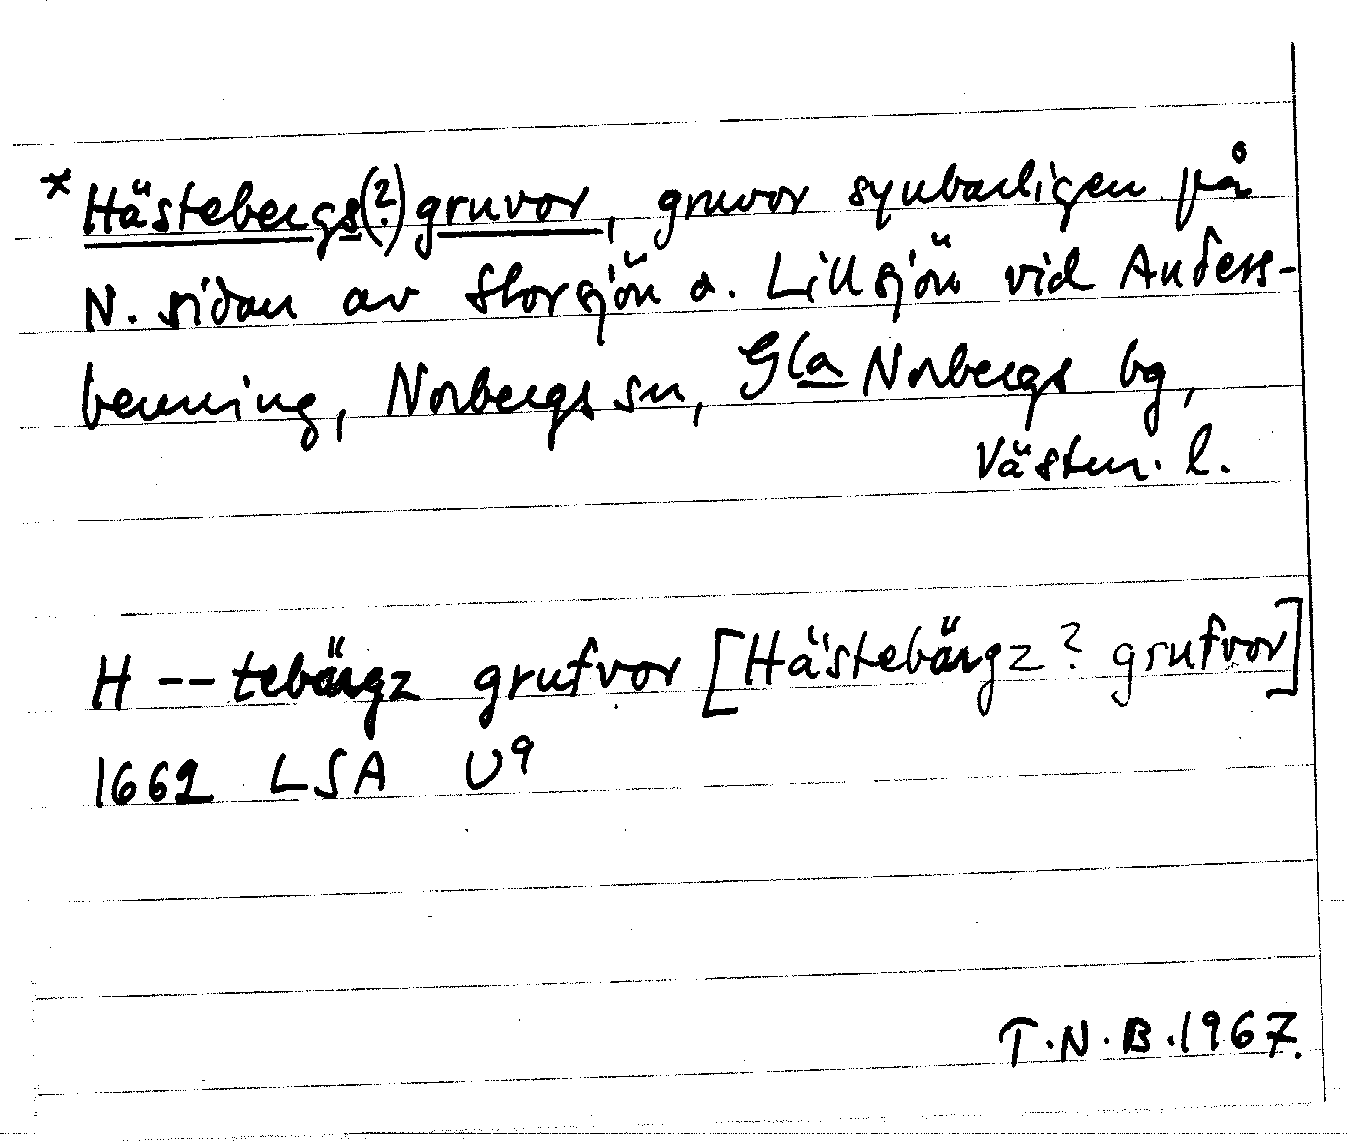 * Hästebergs(?)gruvor, gruvor synbarligen på
N. sidan av Storsjön o. Lillsjön vid Anders-
benning, Norbergs sn, Gla Norbergs bg,
Västm. l.
H -- tebärgz grufvor [Hästebärgz? grufvor]
1662 LSA U9
T.N.B. 1967.